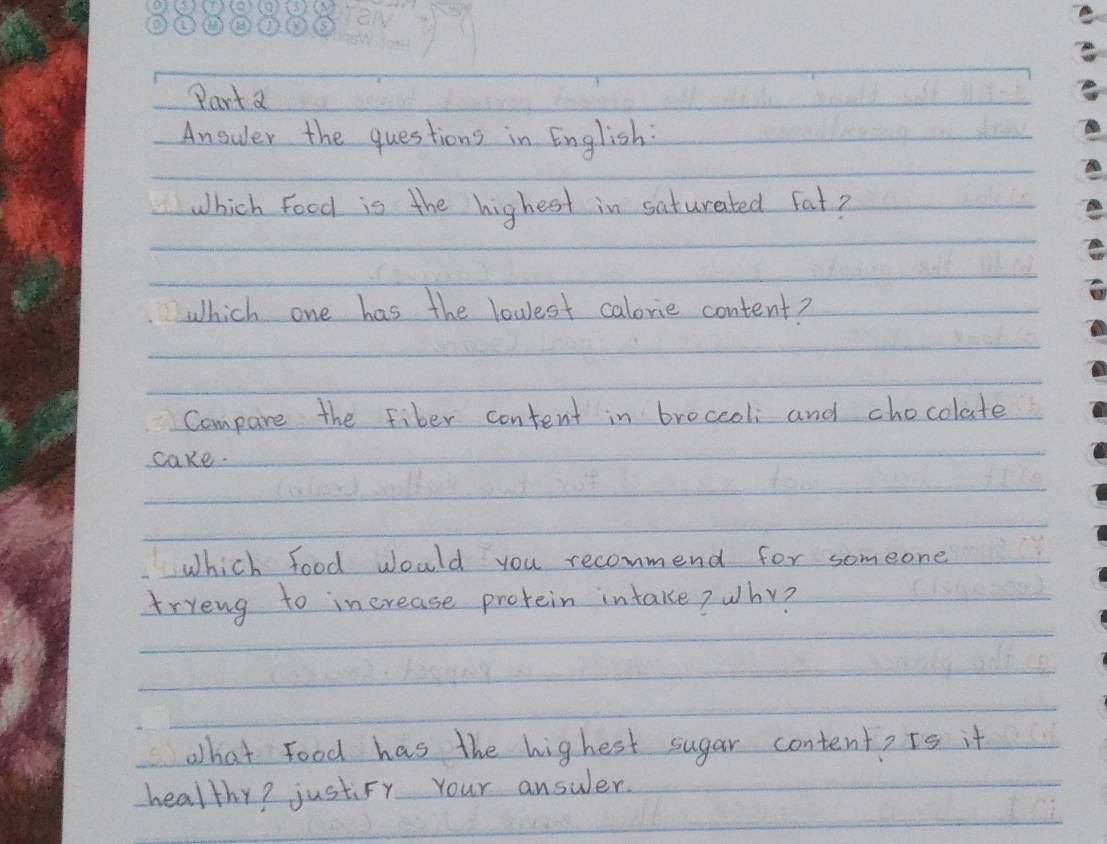 Part 2
Answer the questions in English:
1) Which Food is the highest in saturated fat?
2) Which one has the lowest calorie content?
3) Compare the Fiber content in broccoli and chocolate
cake.
4 Which Food would you recommend for someone
tryeng to increase protein intake? Why?
5) What Food has the highest sugar content? Is it
healthy? justify your answer.